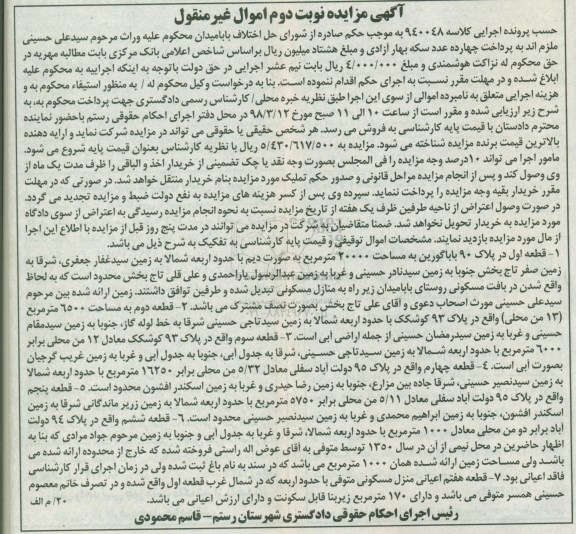 آگهی مزایده نوبت دوم اموال غیرمنقول
حسب پرونده اجرایی کلاسه ۹۴۰۰۴۸ به موجب حکم صادره از شورای حل اختلاف بابامیدان محکوم علیه وراث مرحوم سیدعلی حسینی
ملزم اند به پرداخت چهارده عدد سکه بهار ازادی و مبلغ هشتاد میلیون ریال براساس شاخص اعلامی بانک مرکزی بابت مطالبه مهریه در
حق محکوم له نزاکت هوشمندی و مبلغ ۴/۰۰۰/۰۰۰ ریال بابت نیم عشر اجرایی در حق دولت باتوجه به اینکه اجراییه به محکوم علیه
ابلاغ شده و در مهلت مقرر نسبت به اجرای حکم اقدام ننموده است. بنا به درخواست وکیل محکوم له / به منظور استیفاء محکوم به و
هزینه اجرایی متعلق به نامبرده اموالی از سوی این اجرا طبق نظریه خبره محلی/ کارشناس رسمی دادگستری جهت پرداخت محکوم به، به
شرح زیر ارزیابی شده و مقرر است از ساعت ۱۰ الی ۱۱ صبح مورخ ۹۸/۳/۱۲ در محل دفتر اجرای احکام حقوقی رستم باحضور نماینده
محترم دادستان با قیمت پایه کارشناسی به فروش می رسد. هر شخص حقیقی یا حقوقی می تواند در مزایده شرکت نماید و ارایه دهنده
بالاترین قیمت برنده مزایده شناخته می شود. مزایده به ۵/۴۳۰/۶۱۷/۵۰۰ ریال با نظریه کارشناس بعنوان قیمت پایه شروع می شود.
مامور اجرا می تواند ۱۰درصد وجه مزایده را فی المجلس بصورت وجه نقد یا چک تضمینی از خریدار اخذ و الباقی را ظرف مدت یک ماه از
وی وصول کند و پس از انجام مزایده مراحل قانونی و صدور حکم تملیک مورد مزایده بنام خریدار منتقل خواهد شد. در صورتی که در مهلت
مقرر خریدار بقیه وجه مزایده را پرداخت ننماید. سپرده وی پس از کسر هزینه های مزایده به نفع دولت ضبط و مزایده تجدید می گردد.
در صورت وصول اعتراض از ناحیه طرفین ظرف یک هفته از تاریخ مزایده نسبت به نحوه انجام مزایده رسیدگی به اعتراض از سوی دادگاه
مورد مزایده به خریدار تحویل نخواهد شد. ضمنا متقاضیان به شرکت در مزایده می توانند در مدت پنج روز قبل از مزایده با اطلاع این اجرا
از مال مورد مزایده بازدید نمایند. مشخصات اموال توقیفی و قیمت پایه کارشناسی به تفکیک به شرح ذیل می باشد.
۱- قطعه اول در پلاک ۹۰ باباگورین به مساحت ۲۰۰۰۰ مترمربع به صورت دیم با حدود اربعه شمالا به زمین سیدغفار جعفری، شرقا به
زمین صفر تاج بخش جنوبا به زمین سیدنادر حسینی و غربا به زمین عبدالرسول یاراحمدی و علی قلی تاج بخش محدود است که به لحاظ
واقع شدن در بافت مسکونی روستای بابامیدان زیر راه به منازل مسکونی تبدیل شده و طرفین توافق داشتند. زمین ارائه شده بین مرحوم
سیدعلی حسینی مورث اصحاب دعوی و آقای علی تاج بخش بصورت نصف مشترک می باشد. ۲- قطعه دوم به مساحت ۶۵۰۰ مترمربع
(۱۳ من محلی) واقع در پلاک ۹۳ کوشکک با حدود اربعه شمالا به زمین سیدتاجی حسینی شرقا به خط لوله گاز، جنوبا به زمین سیدمقام
حسینی و غربا به زمین سیدرمضان حسینی از جمله اراضی آبی است. ۳- قطعه سوم واقع در پلاک ۹۳ کوشکک معادل ۱۲ من محلی برابر
۶۰۰۰ مترمربع با حدود اربعه شمالا به زمین سیدتاجی حسینی، شرقا به جدول آبی، جنوبا به جدول آبی و غربا به زمین غریب گرجیان
بصورت آبی است. ۴- قطعه چهارم واقع در پلاک ۹۵ دولت آباد سفلی معادل ۵/۳۲ من محلی برابر ۱۶۲۵۰ مترمربع با حدود اربعه شمالا
به زمین سیدنصیر حسینی، شرقا جاده بین مزارع، جنوبا به زمین رضا حیدری و غربا به زمین اسکندر افشون محدود است. ۵- قطعه پنجم
واقع در پلاک ۹۵ دولت آباد سفلی معادل ۵/۱۱ من محلی برابر ۵۷۵۰ مترمربع با حدود اربعه شمالا به زمین زریر ماندگانی شرقا به زمین
اسکندر افشون، جنوبا به زمین ابراهیم محمدی و غربا به زمین سیدنصیر حسینی محدود است. ۶- قطعه ششم واقع در پلاک ۹۴ دولت
آباد برابر دو من محلی معادل ۱۰۰۰ مترمربع با حدود اربعه شمالا، شرقا و غربا به جدول آبی و جنوبا به زمین مرحوم جواد مرادی که بنا به
اظهار حاضرین در محل نیمی از آن در سال ۱۳۵۰ توسط متوفی به آقای عوض اله راستی فروخته شده که خارج از محدوده ارائه شده می
باشد ولی مساحت زمین ارائه شده همان ۱۰۰۰ مترمربع می باشد که در سند به نام باغ ثبت شده ولی در زمان اجرای قرار کارشناسی
فاقد اعیانی بود. ۷- قطعه هفتم اعیانی منزل مسکونی متوفی با حدود اربعه که در شمال غرب قطعه اول واقع شده و در تصرف خانم معصوم
حسینی همسر متوفی می باشد و دارای ۱۷۰ مترمربع زیربنا قابل سکونت و دارای ارزش اعیانی می باشد. ۲۰/ م الف
رئیس اجرای احکام حقوقی دادگستری شهرستان رستم- قاسم محمودی